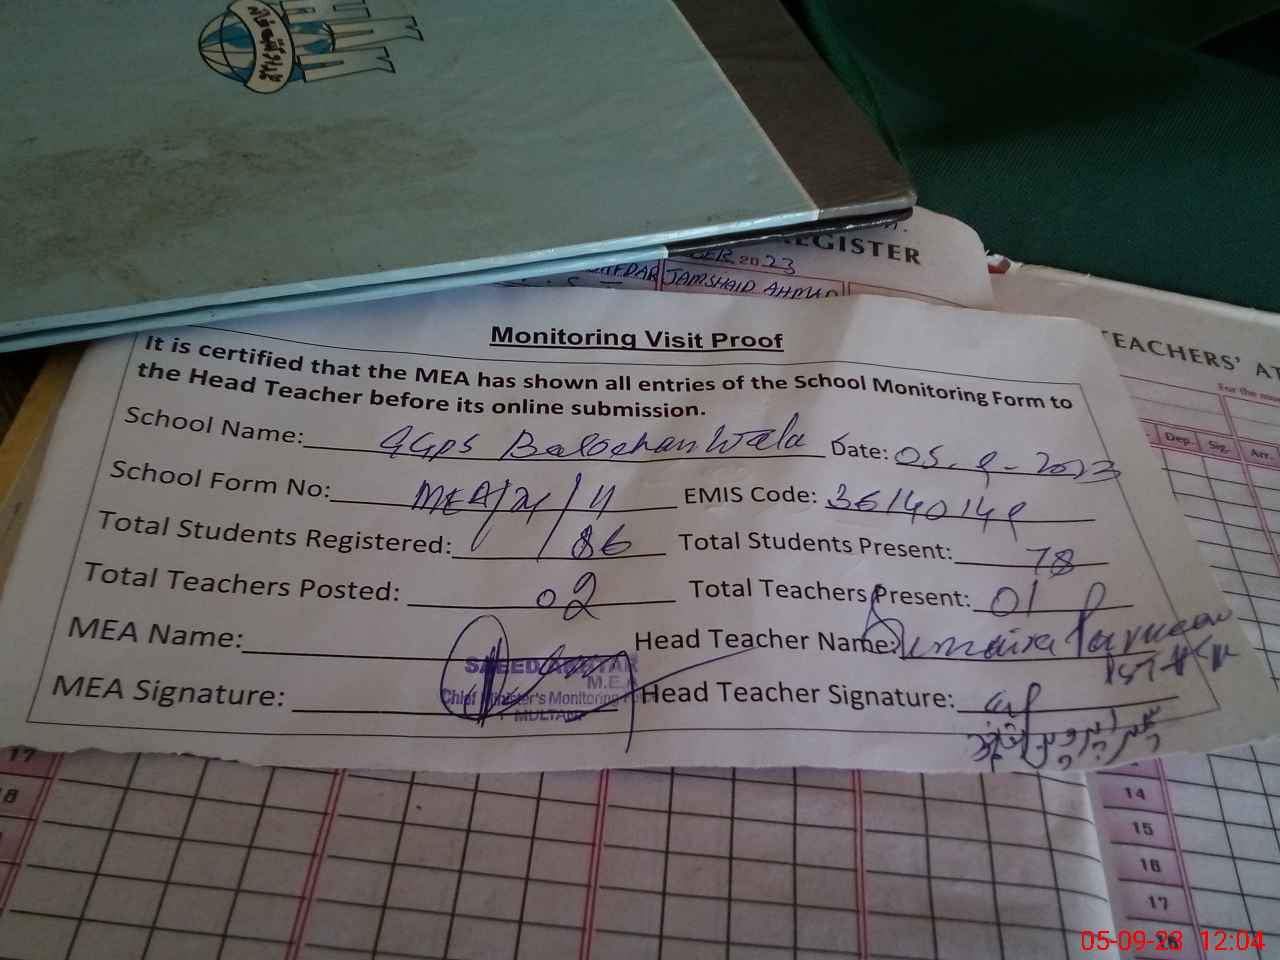 REGISTER
2023
JAMSHAID AHMAD
TEACHERS' AT
Dep. Sig. Arr.
Monitoring Visit Proof
It is certified that the MEA has shown all entries of the School Monitoring Form to
the Head Teacher before its online submission.
School Name: GGPS Balochan Wala Date: 05-9-2023
School Form No: MEA/21/4 EMIS Code: 36140149
Total Students Registered: 86 Total Students Present: 78
Total Teachers Posted: 02 Total Teachers Present: 01
MEA Name: Head Teacher Name: Sumaira Parveen
SAEED AKHTAR
M.E.A
Chief Minister's Monitoring
MULTAN
MEA Signature: Head Teacher Signature:
17
18
14
15
16
17
05-09-23 12:04